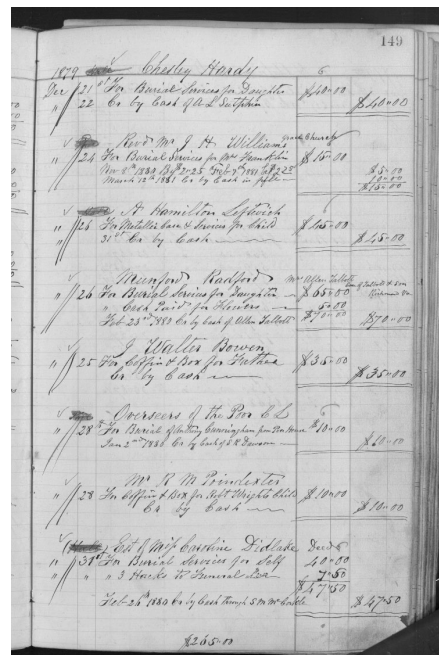 149
1879 Chesley Hardy
Dec 21st For Burial Services for Daughter $40.00
" 22 Cr by Cash of A L Sutphin $40.00
Revd Mr J H Williams Grace Church
" 24 For Burial Services for Mrs Franklin $15.00
Nov 8th 1880 By $2.25 Feby 7th 1881 $2.25 $5.00
March 12th 1881 Cr by Cash in full 10.00
$15.00
A Hamilton Leftwich
" 25 For Metallic Case & Services for Child $45.00
31st Cr by Cash $45.00
Munford Radford Mr Allen Talbott
of Talbott & Son
" 26 For Burial Services for Daughter $65.00 Richmond Va
" Cash Paid for Flowers 5.00
Feb 23rd 1880 Cr by Cash of Allen Talbott $70.00 $70.00
J Walter Bowen
" 25 For Coffin & Box for Father $35.00
Cr by Cash $35.00
Overseers of the Poor C L
" 28th For Burial of Cunningham from Poor House $10.00
Jany 2nd 1880 Cr by Cash of Dawson $10.00
Mr R M Poindexter
" 28 For Coffin & Box for Robt Wrights Child $10.00
Cr by Cash $10.00
Est of Miss Caroline Didlake Decd
" 31st For Burial Services for Self 40.00
" " 3 Hacks to Funeral 7.50
$47.50
Feb 26th 1880 Cr by Cash through S M McCorkle $47.50
$265.00